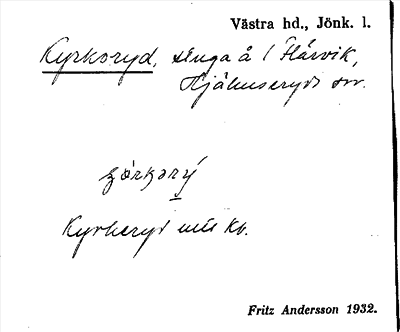 Västra hd., Jönk. l.
Kyrkoryd, stuga å l Hårvik,
Kjähuseryds sn.
Kyrkeryd enl. kb.
Fritz Andersson 1932.